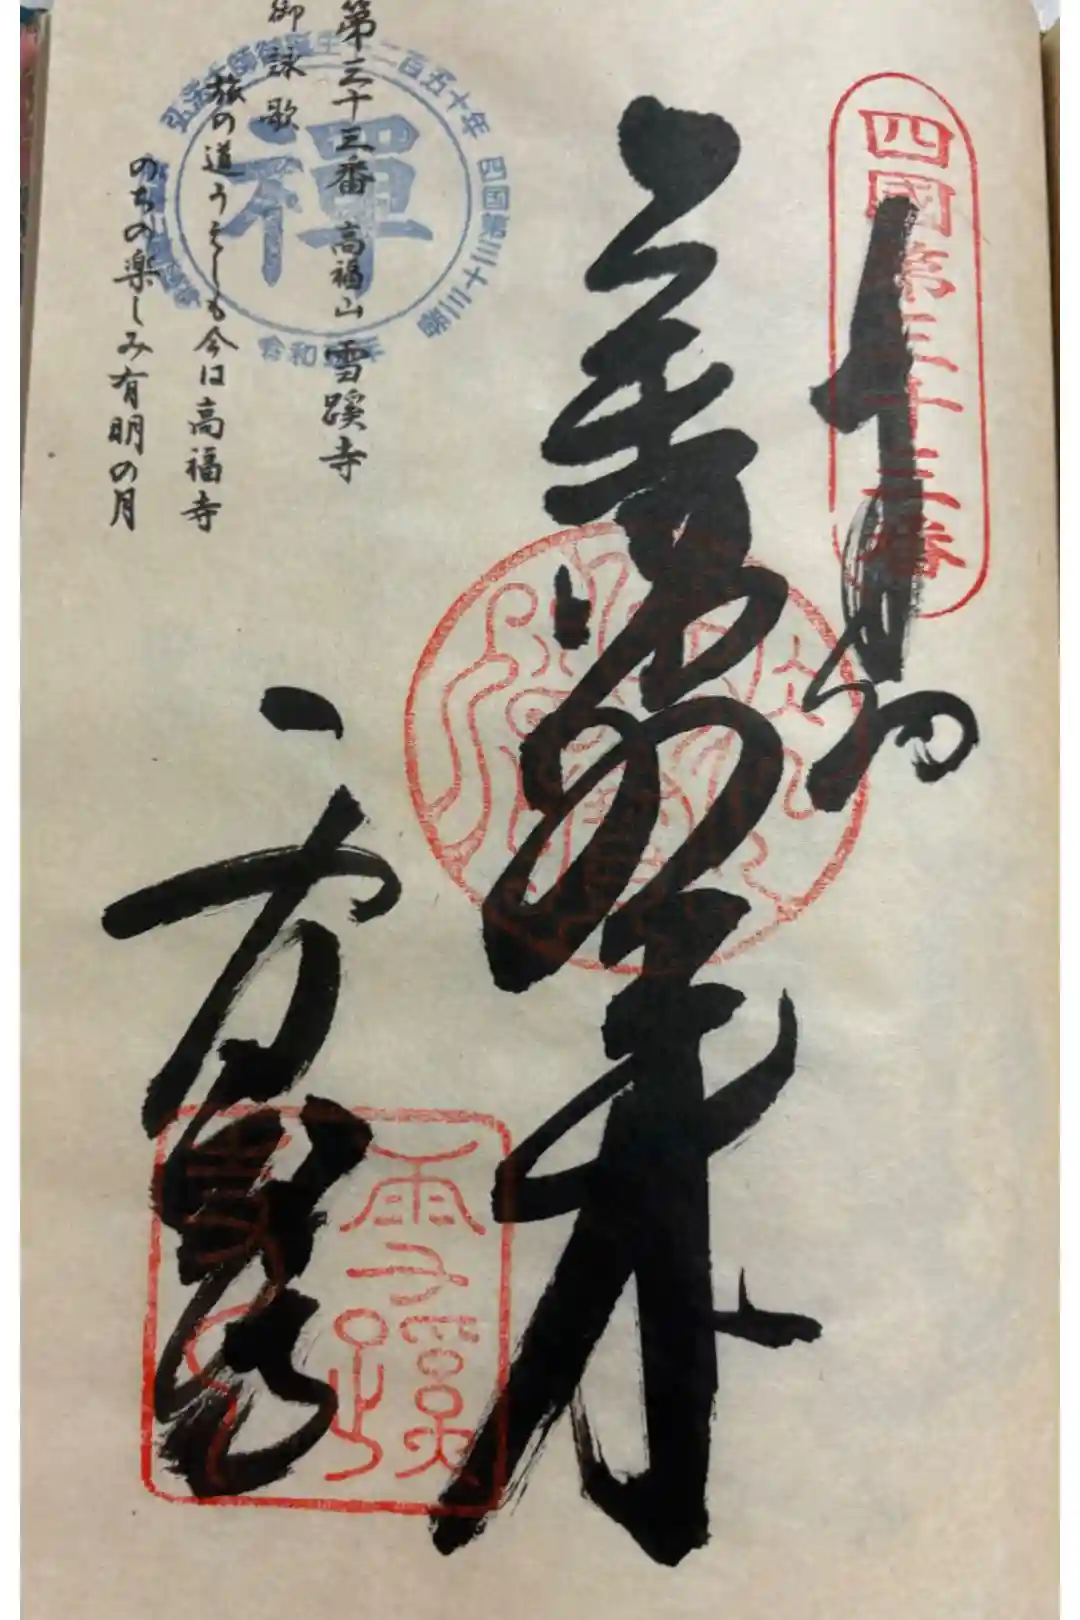 四國第三十三番
奉納
薬師如来
高福山
雪蹊寺
第三十三番 高福山 雪蹊寺
御詠歌
旅の道うえしも今は高福寺
のちの楽しみ有明の月
禅
弘法大師御誕生千二百五十年
四国第三十三番
令和五年